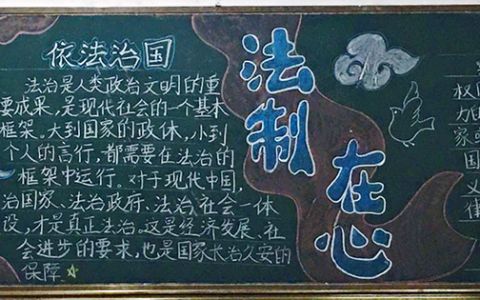 依法治国
法治是人类政治文明的重
要成果，是现代社会的一个基本
框架。大到国家的政体，小到
个人的言行，都需要在法治的
框架中运行。对于现代中国，
治国家、法治政府、法治社会一体
设，才是真正法治。这是经济发展、社
会进步的要求，也是国家长治久安的
保障。
法制
在心
权
力
家
国
义